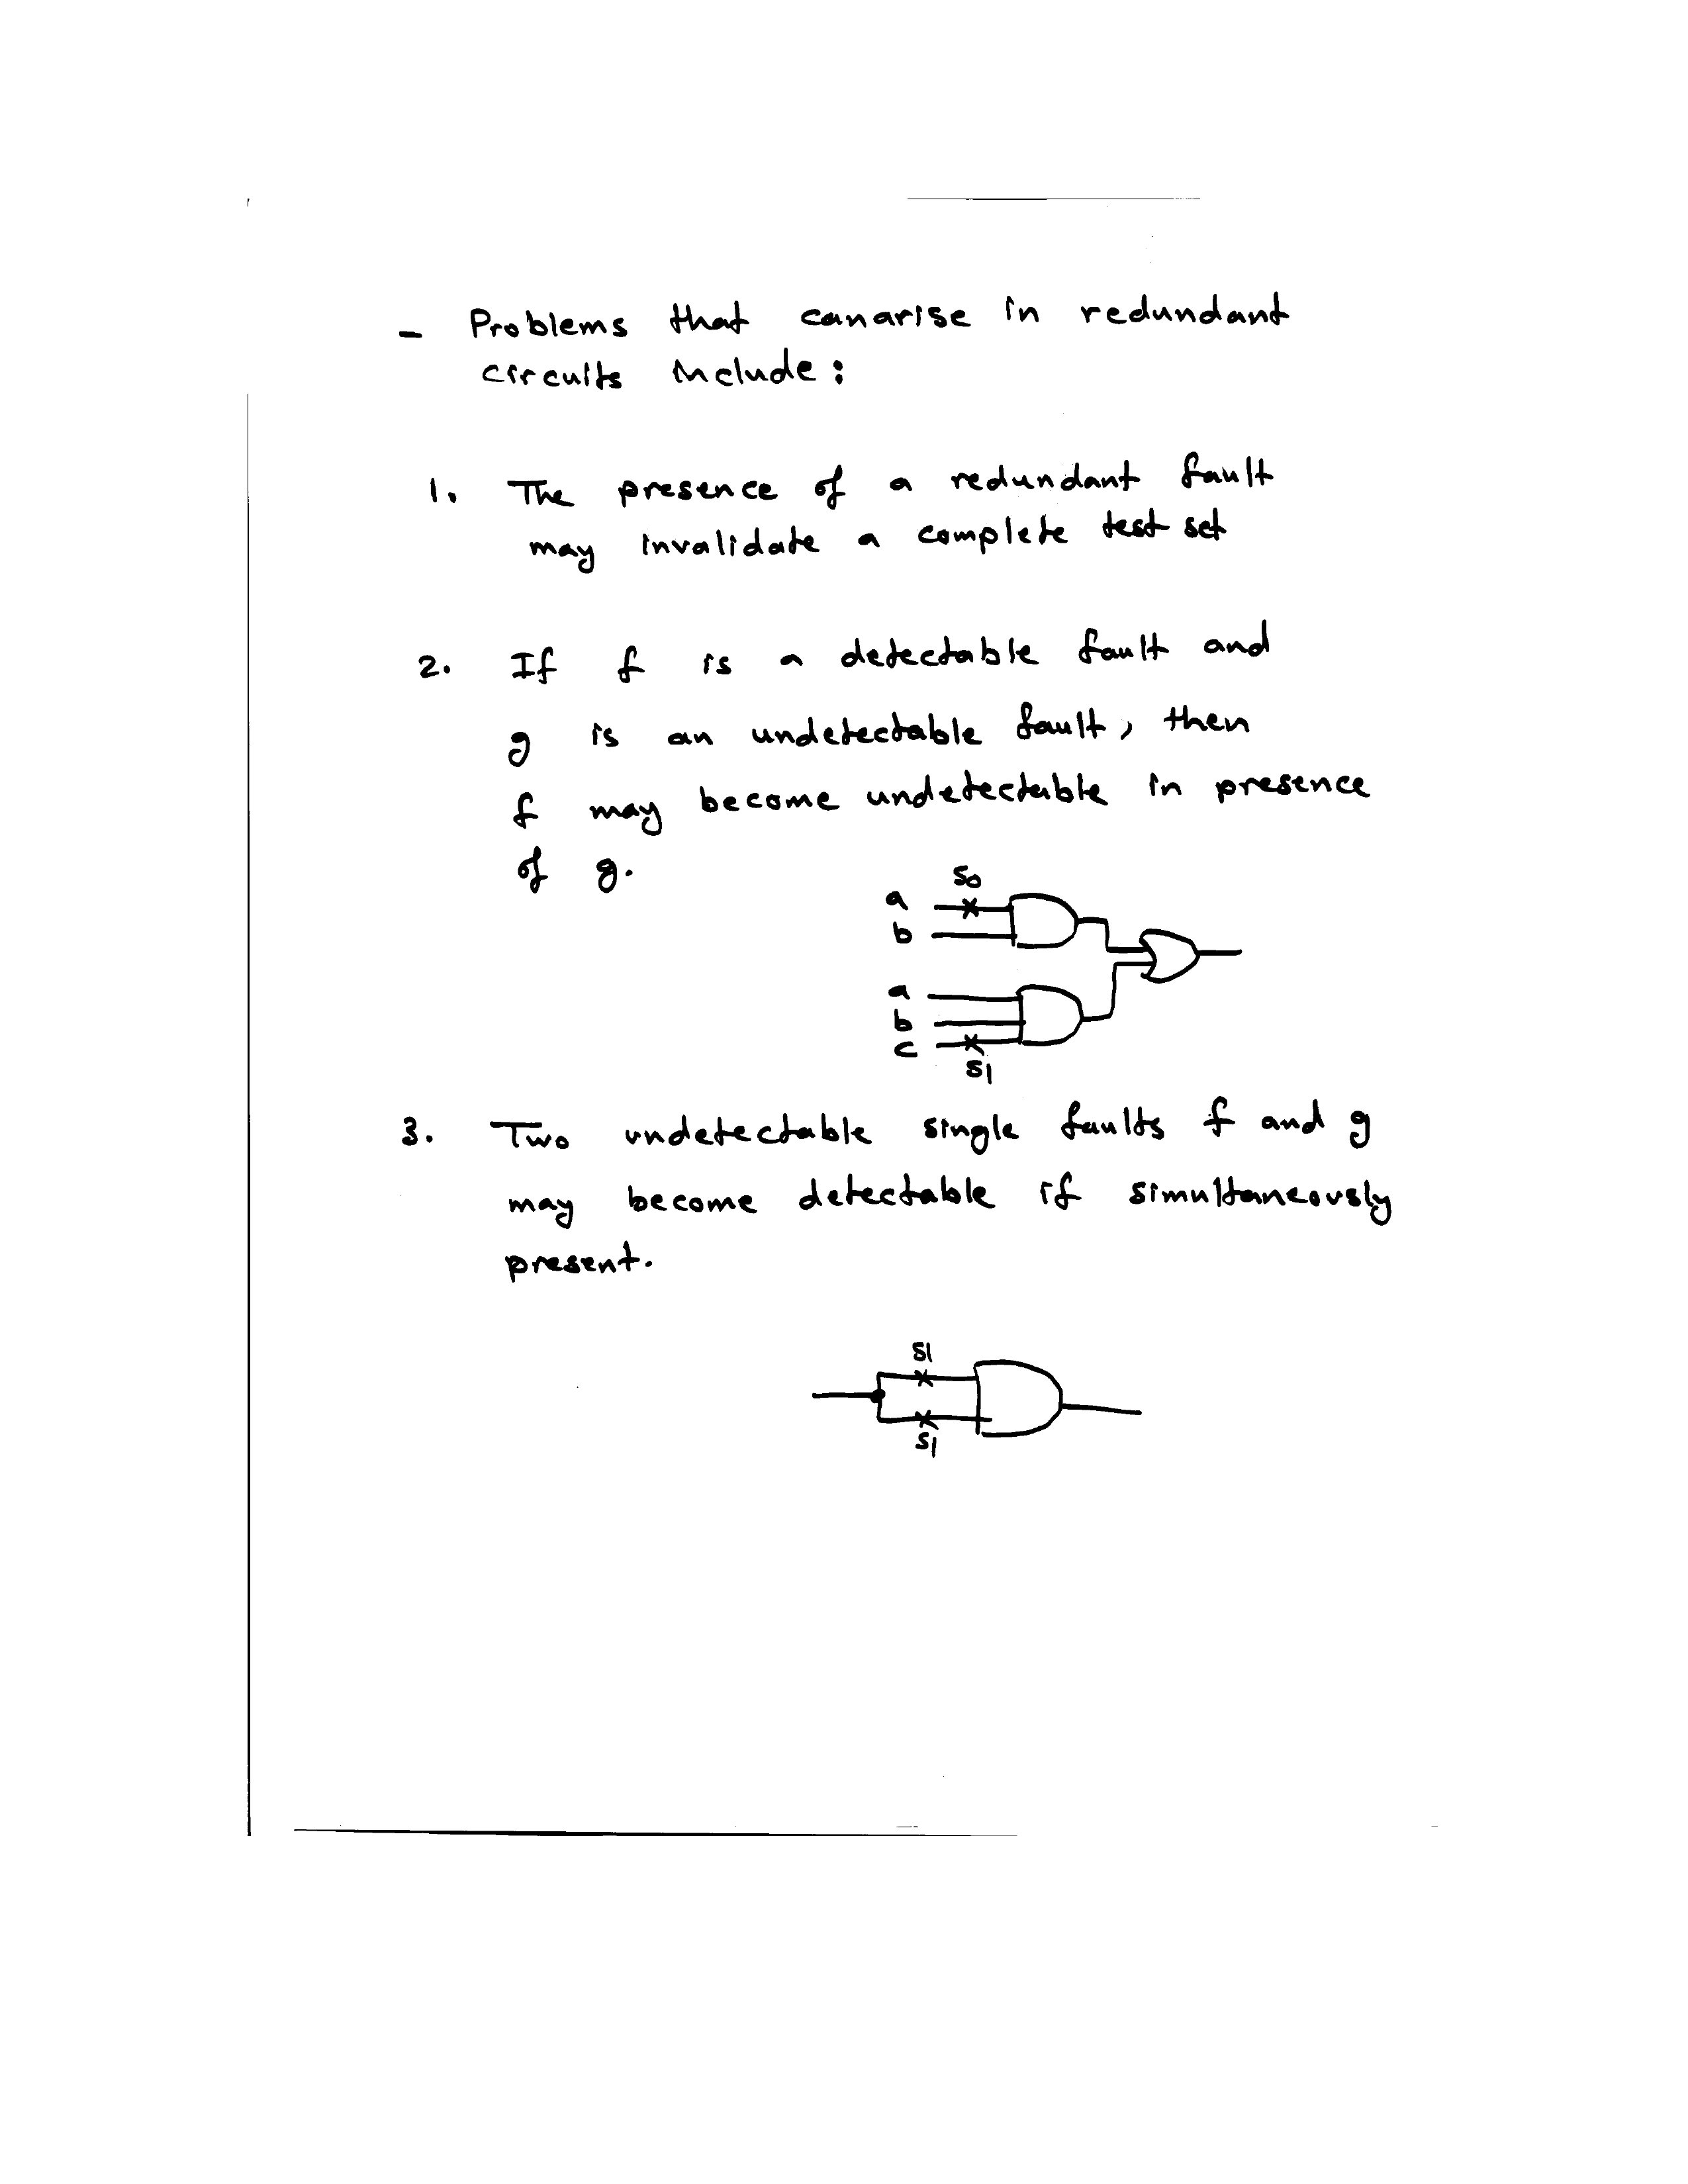 - Problems that can arise in redundant
circuits include :
1. The presence of a redundant fault
may invalidate a complete test set
2. If f is a detectable fault and
g is an undetectable fault, then
f may become undetectable in presence
of g.
S0
a
b
a
b
c
S1
3. Two undetectable single faults f and g
may become detectable if simultaneously
present.
S1
S1